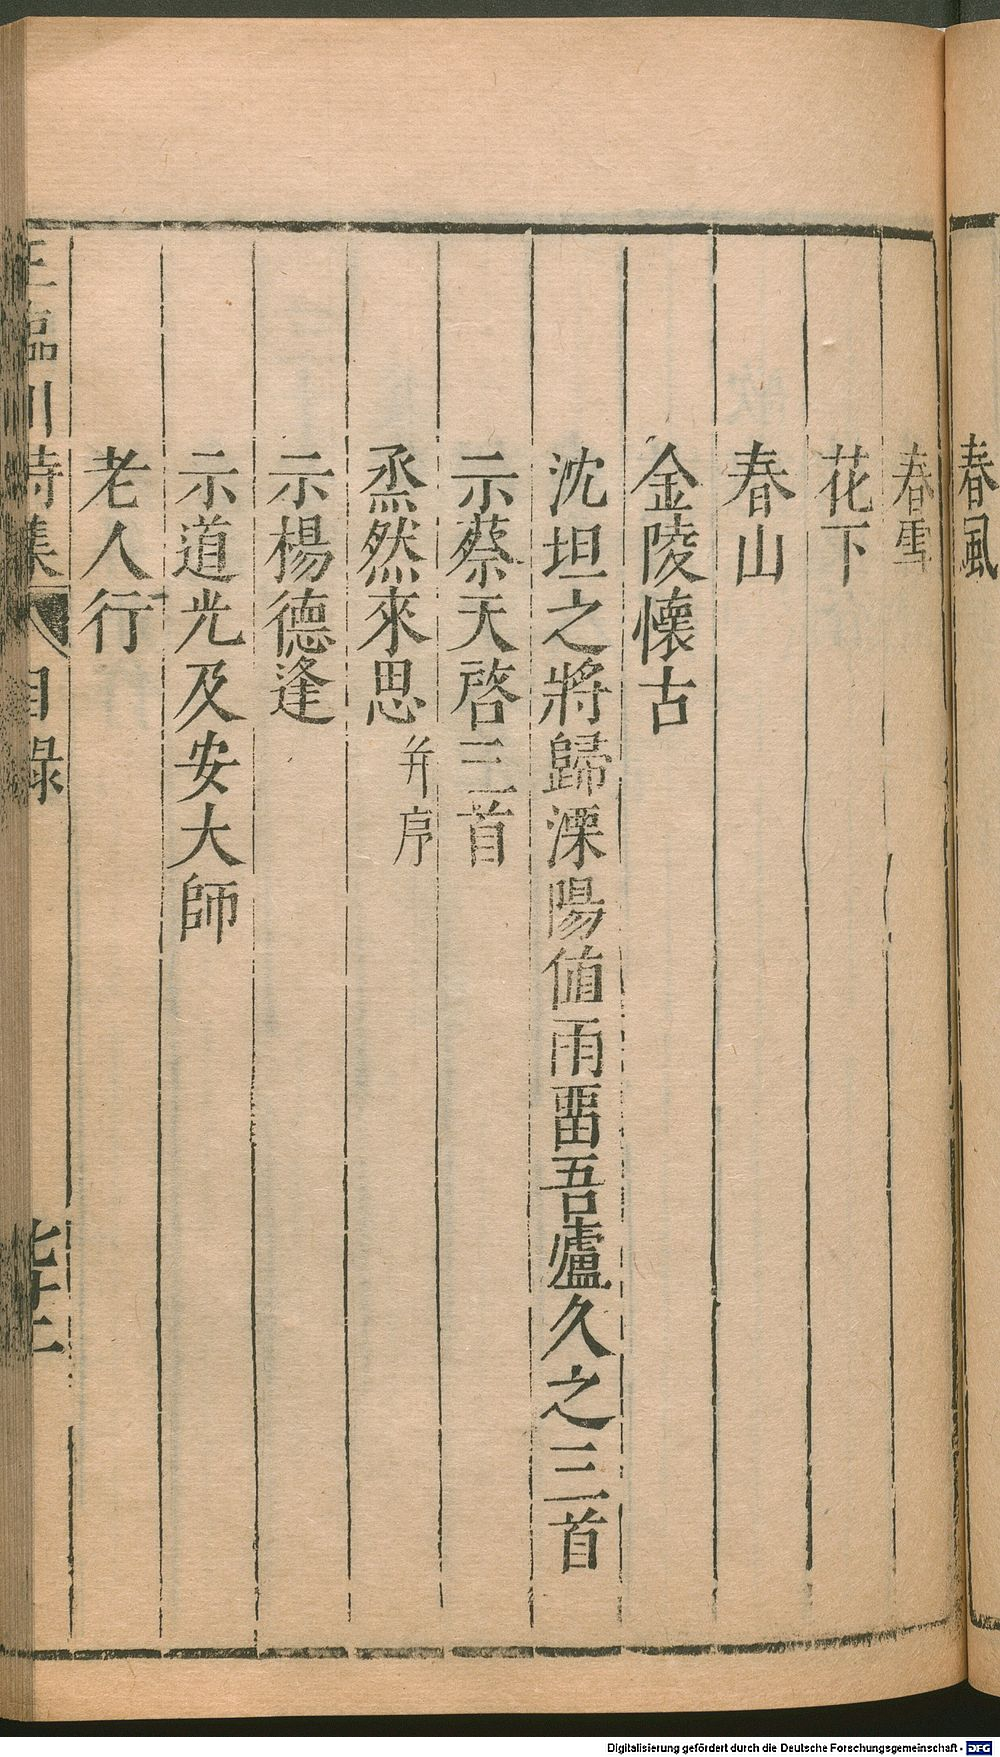 春風
春雪
花下
春山
金陵懷古
沈坦之將歸溧陽值雨畱吾廬久之三首
示蔡天啓三首
烝然來思 并序
示楊德逢
示道光及安大師
老人行
王臨川詩集 目錄
Digitalisierung gefördert durch die Deutsche Forschungsgemeinschaft - DFG